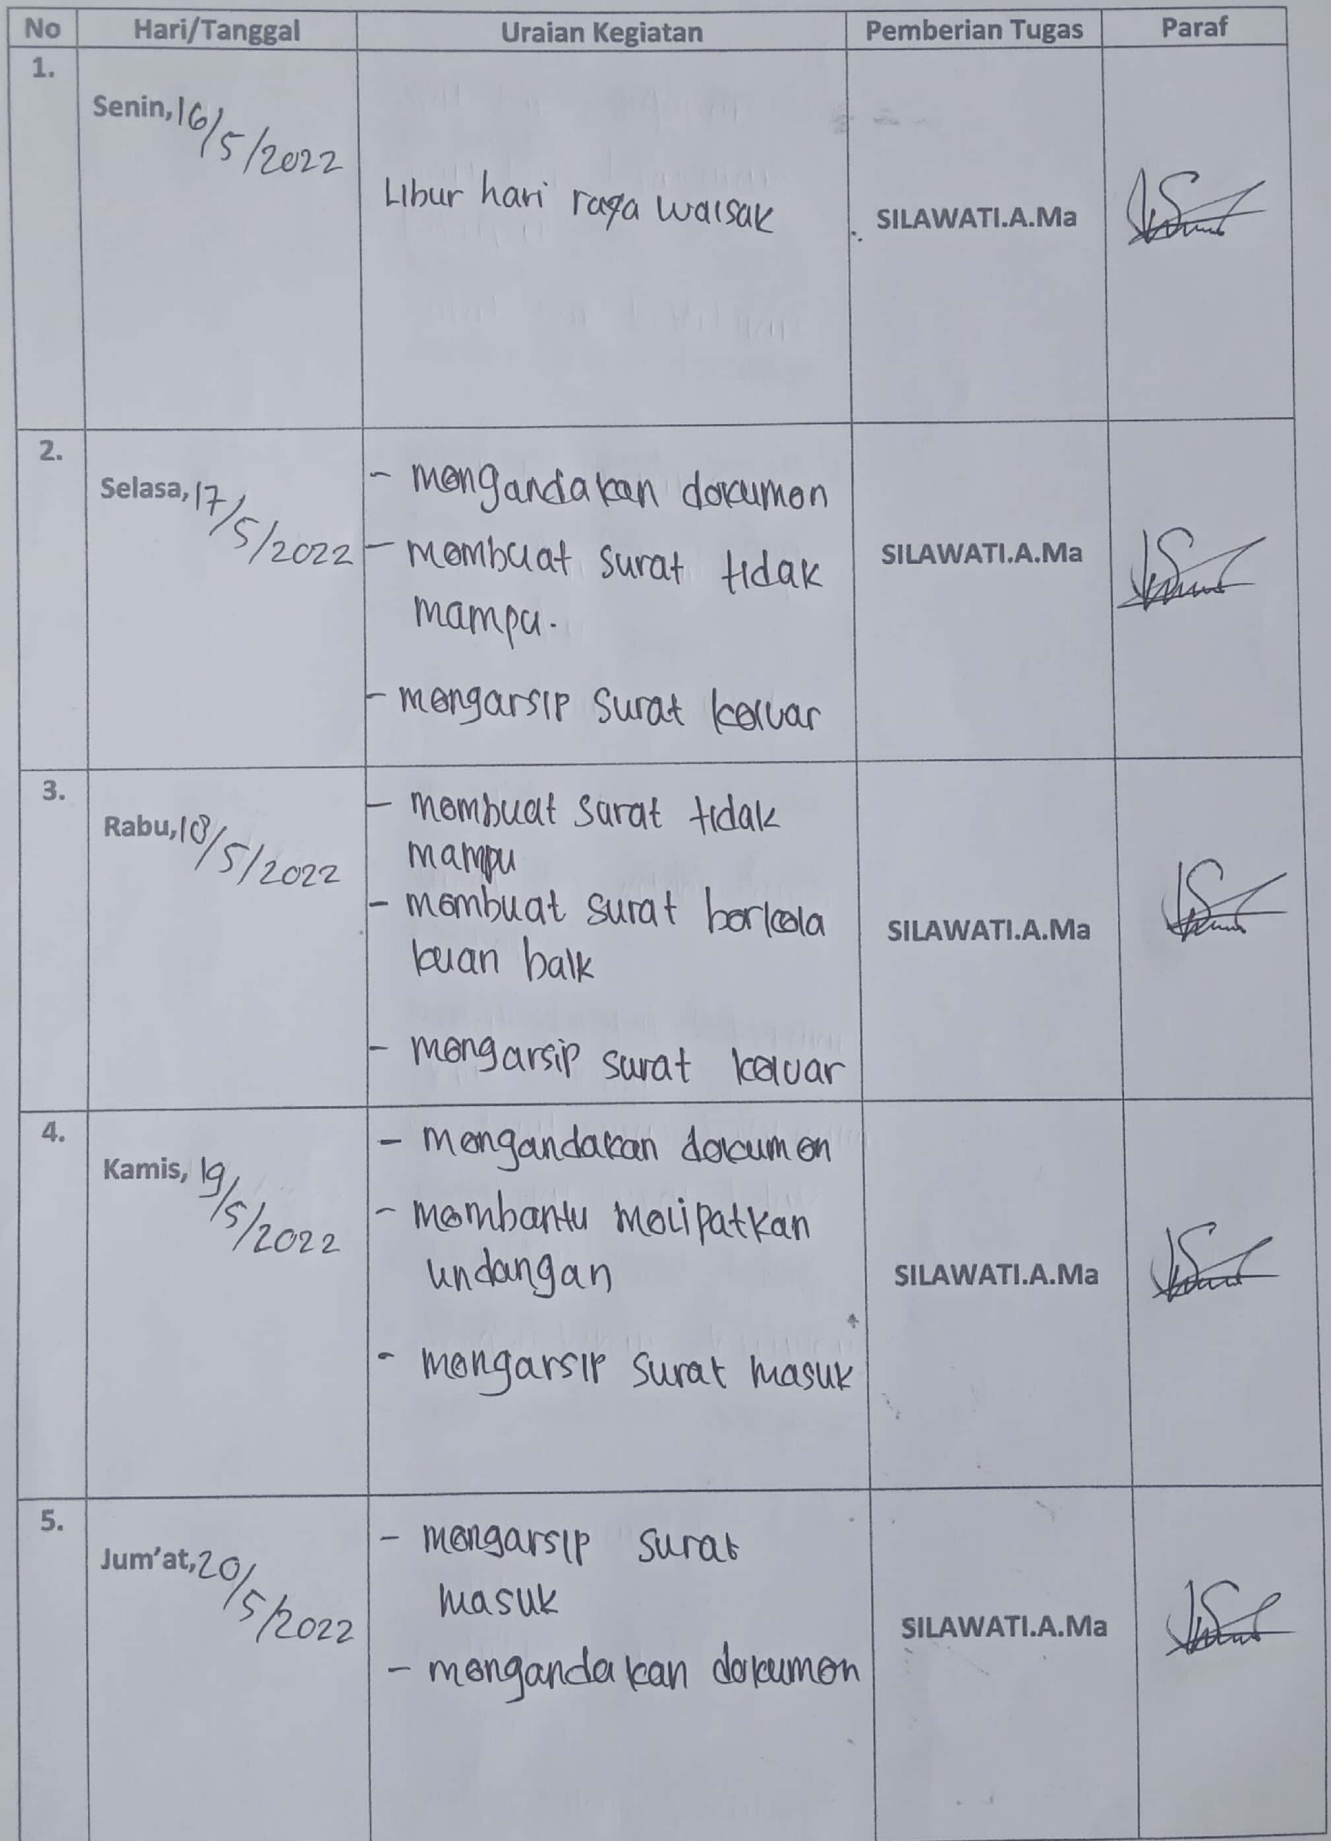 No Hari/Tanggal Uraian Kegiatan Pemberian Tugas Paraf
1.
Senin, 16/5/2022
Libur hari raya waisak
SILAWATI.A.Ma
2.
Selasa, 17/5/2022
- mengandakan dokumen
- membuat surat tidak
mampu.
- mengarsip surat keluar
SILAWATI.A.Ma
3.
Rabu, 18/5/2022
- membuat surat tidak
mampu
- membuat surat berkela
kuan baik
- mengarsip surat keluar
SILAWATI.A.Ma
4.
Kamis, 19/5/2022
- mengandakan dokumen
- membantu melipatkan
undangan
- mengarsip surat masuk
SILAWATI.A.Ma
5.
Jum'at, 20/5/2022
- mengarsip surat
masuk
- mengandakan dokumen
SILAWATI.A.Ma